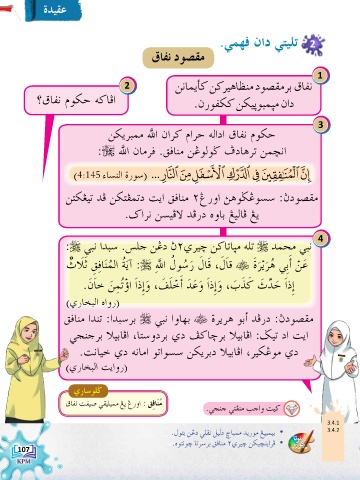 عقيدة
2 تليتي دان فهمي.
مقصود نفاق
1
نفاق برمقصود منظاهيركن كأيمانن
دان مڽمبوڽيكن ككفورن.
2
اڤاكه حكوم نفاق؟
3
حكوم نفاق اداله حرام كران الله ممبريكن
انچمن ترهادڤ ݢولوڠن منافق. فرمان الله ﷻ:
إِنَّ ٱلۡمُنَٰفِقِينَ فِي ٱلدَّرۡكِ ٱلۡأَسۡفَلِ مِنَ ٱلنَّارِ ... (سورة النساء 4:145)
مقصودن: سسوڠݢوهن اورڠ٢ منافق ايت دتمڤتكن ڤد تيڠكتن
يڠ ڤاليڠ باوه درڤد لاڤيسن نراک.
4
نبي محمد ﷺ تله مڽاتاكن چيري٢ن دڠن جلس. سبدا نبي ﷺ:
عَنْ أَبِي هُرَيْرَةَ ﵁ قَالَ، قَالَ رَسُولُ اللَّهِ ﷺ: آيَةُ المُنَافِقِ ثَلَاثٌ
إِذَا حَدَّثَ كَذَبَ، وَإِذَا وَعَدَ أَخْلَفَ، وَإِذَا اؤْتُمِنَ خَانَ.
(رواه البخاري)
مقصودن: درڤد أبو هريرة ﵁ بهاوا نبي ﷺ برسبدا: تندا منافق
ايت اد تيݢ: اڤابيلا برچاكڤ دي بردوستا، اڤابيلا برجنجي
دي موڠكير، اڤابيلا دبريكن سسواتو امانه دي خيانت.
(روايت البخاري)
ݢلوساري
مُنَافِق : اورڠ يڠ مميليقي صيفت نفاق
كيت واجب منڤتي جنجي.
3.4.1
3.4.2
• بيمبيڠ موريد ممباچ دليل نقلي دڠن بتول.
• ڤراينچيكن چيري٢ منافق برسرتا چونتوه.
107
KPM